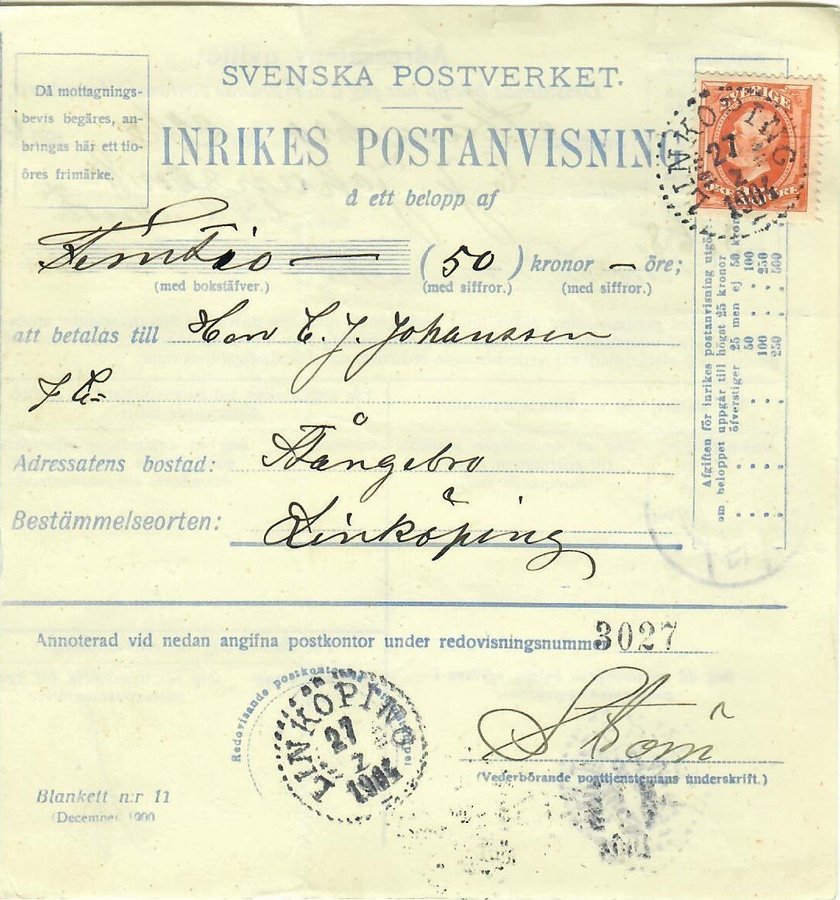 SVENSKA POSTVERKET.
Då mottagnings-
bevis begäres, an-
bringas här ett tio-
öres frimärke.
INRIKES POSTANVISNING
å ett belopp af
SVERIGE
LINKÖPING
27
2
1904
Femtio — (50) kronor — öre;
(med bokstäfver.) (med siffror.) (med siffror.)
att betalas till Herr C. J. Johansson
Adressatens bostad: Stångebro
Bestämmelseorten: Linköping
Afgiften för inrikes postanvisning utgör:
om beloppet uppgår till högst 25 kronor
öfverstiger 25 men ej 50 kronor
" 50 " " 100 "
" 100 " " 250 "
" 250 " " 500 "
Annoterad vid nedan angifna postkontor under redovisningsnummer 3027
Redovisande postkontorets
LINKÖPING
27
2
1904
Ström
(Vederbörande posttjenstemans underskrift.)
Blankett n:r 11
(December 1900